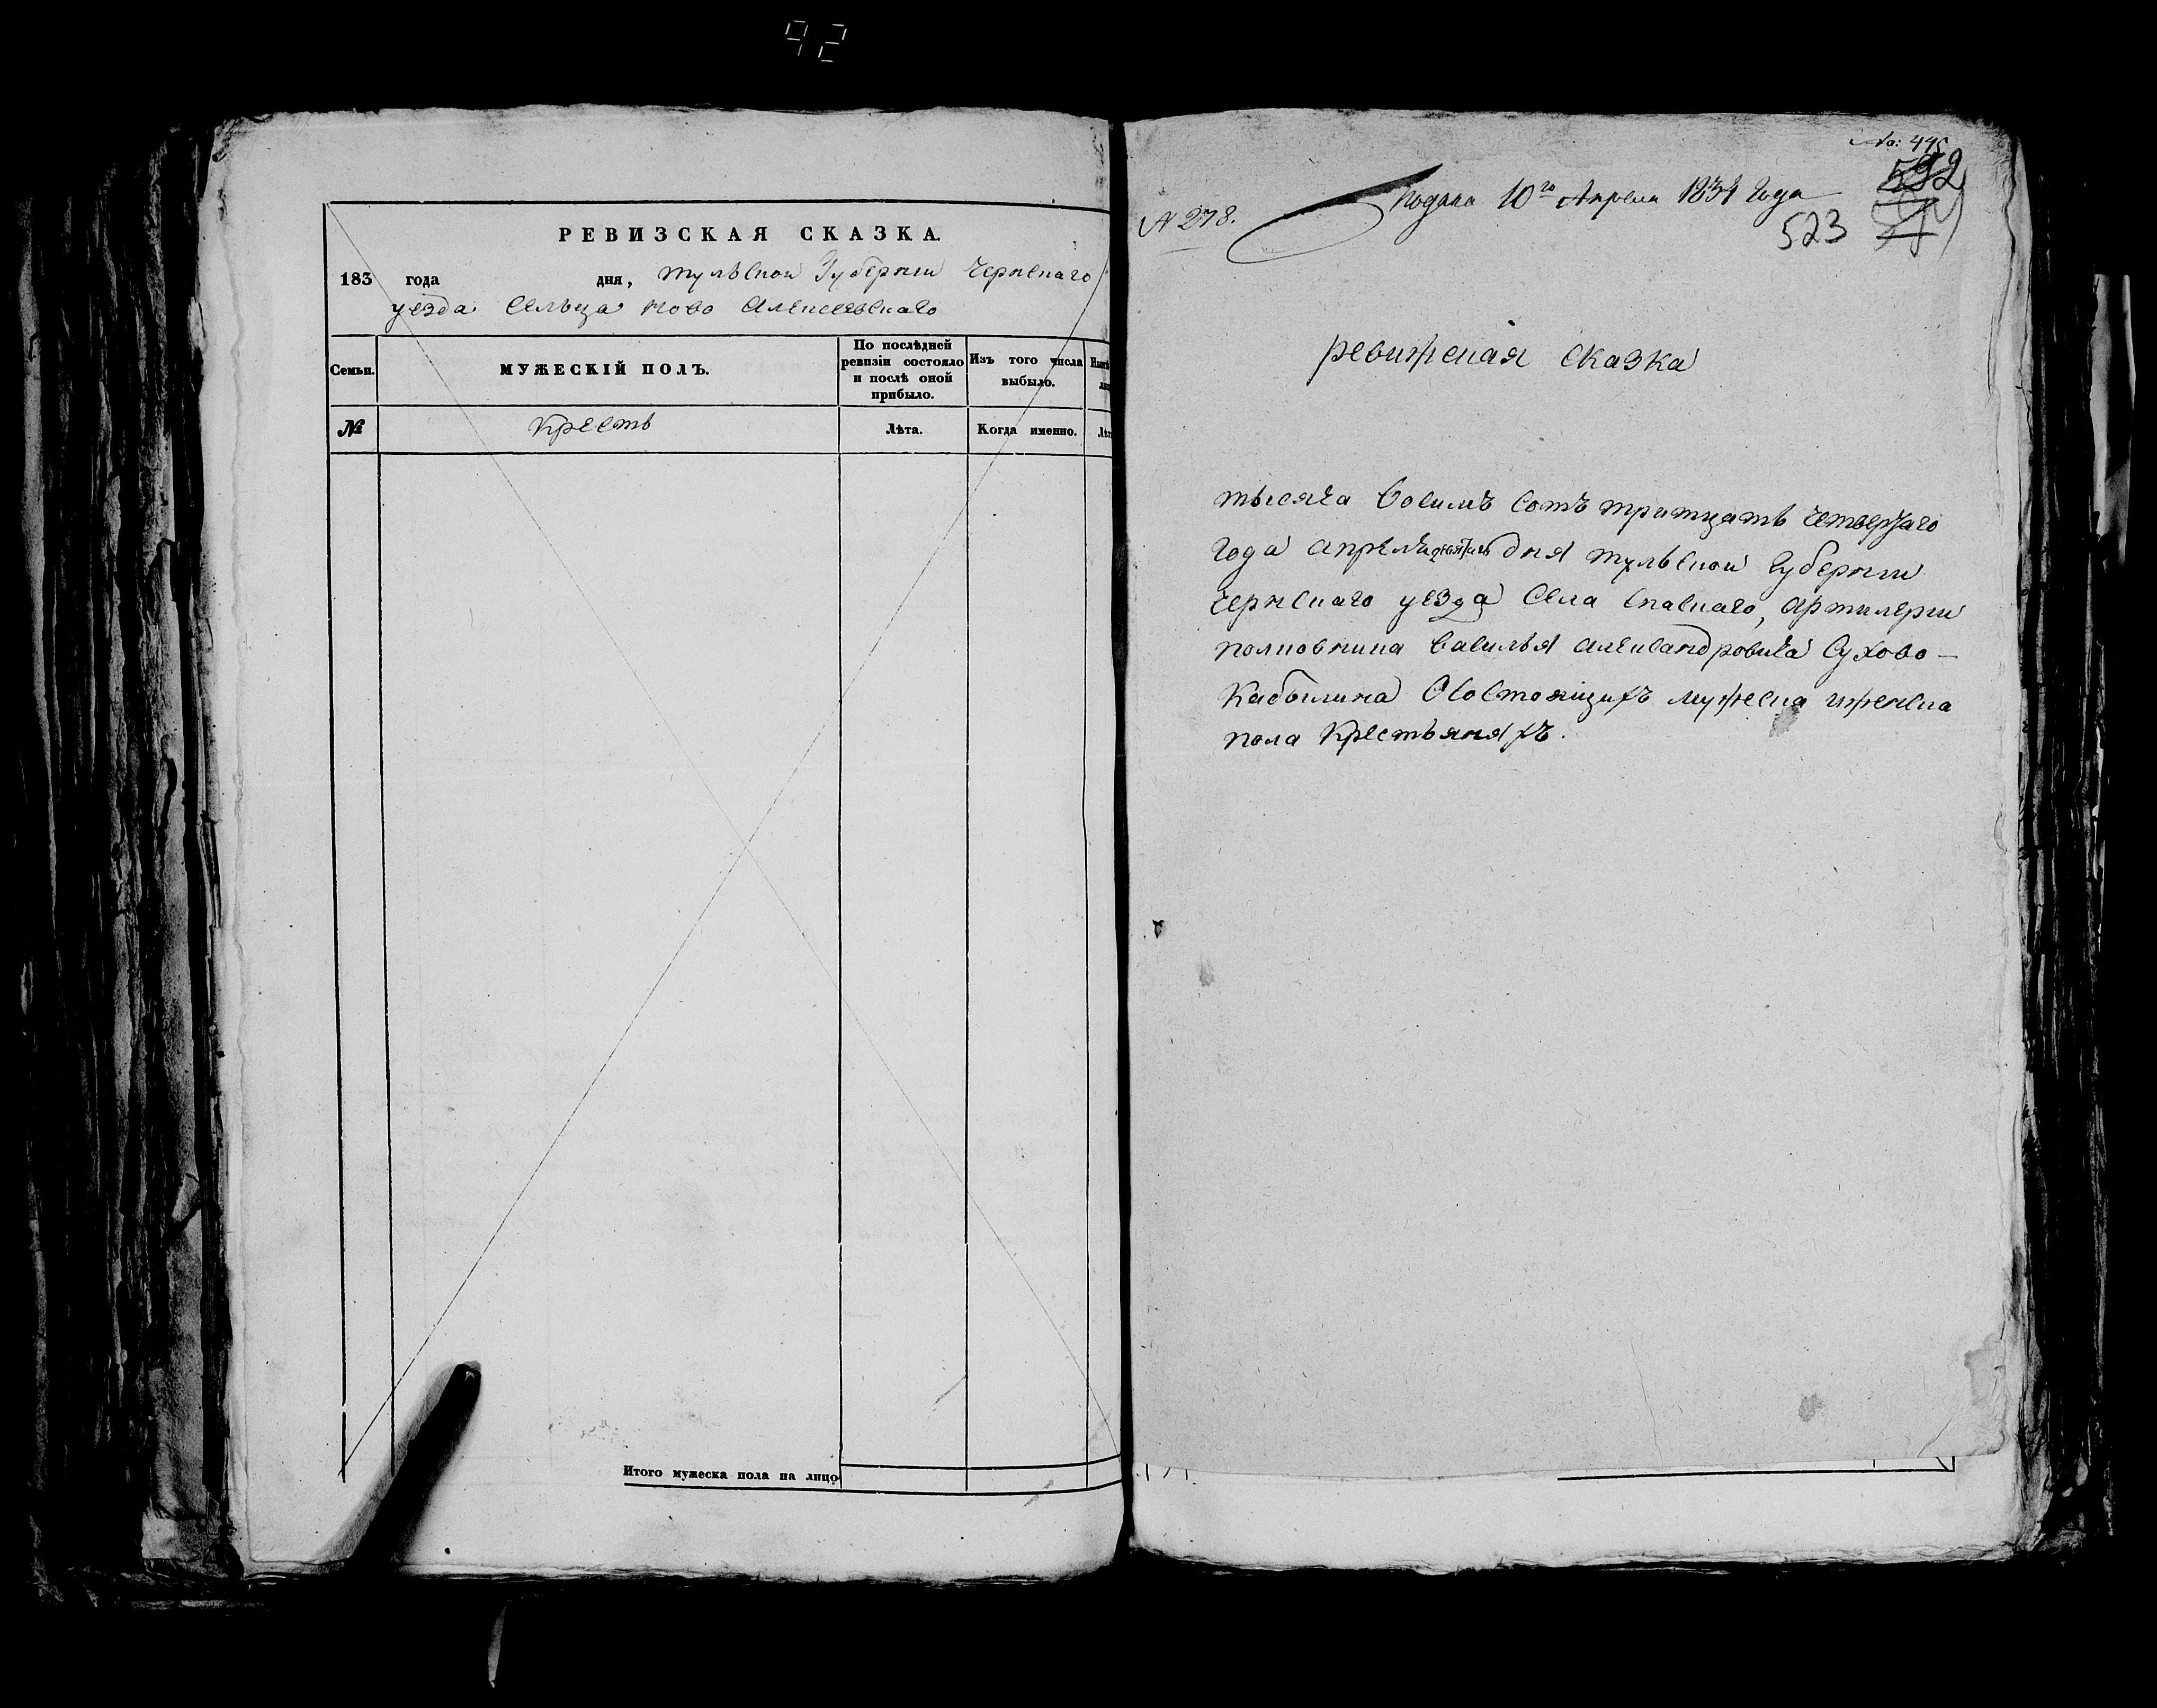 92
РЕВИЗСКАЯ СКАЗКА.
183 года дня, тульской Губернии Чернскаго
уезда Сельца Ново Алексеевскаго
Семьи.
МУЖЕСКІЙ ПОЛЪ.
По послѣдней
ревизіи состояло
и послѣ оной
прибыло.
Изъ того числа
выбыло.
№
Крестъ
Лѣта.
Когда именно.
Итого мужеска пола на лицо
No: 445
592
Подана 10го Апреля 1834 Года
N 278.
523
ревижская сказка
тысяча восимъ сотъ тритцать четвертаго
года апреля девятаго дня тульской Губернии
чернскаго уезда Села спаскаго, артилерии
полковника василья александровича Сухово-
Кабылина Осостоящихъ мужеска иженска
пола Крестьяняхъ.